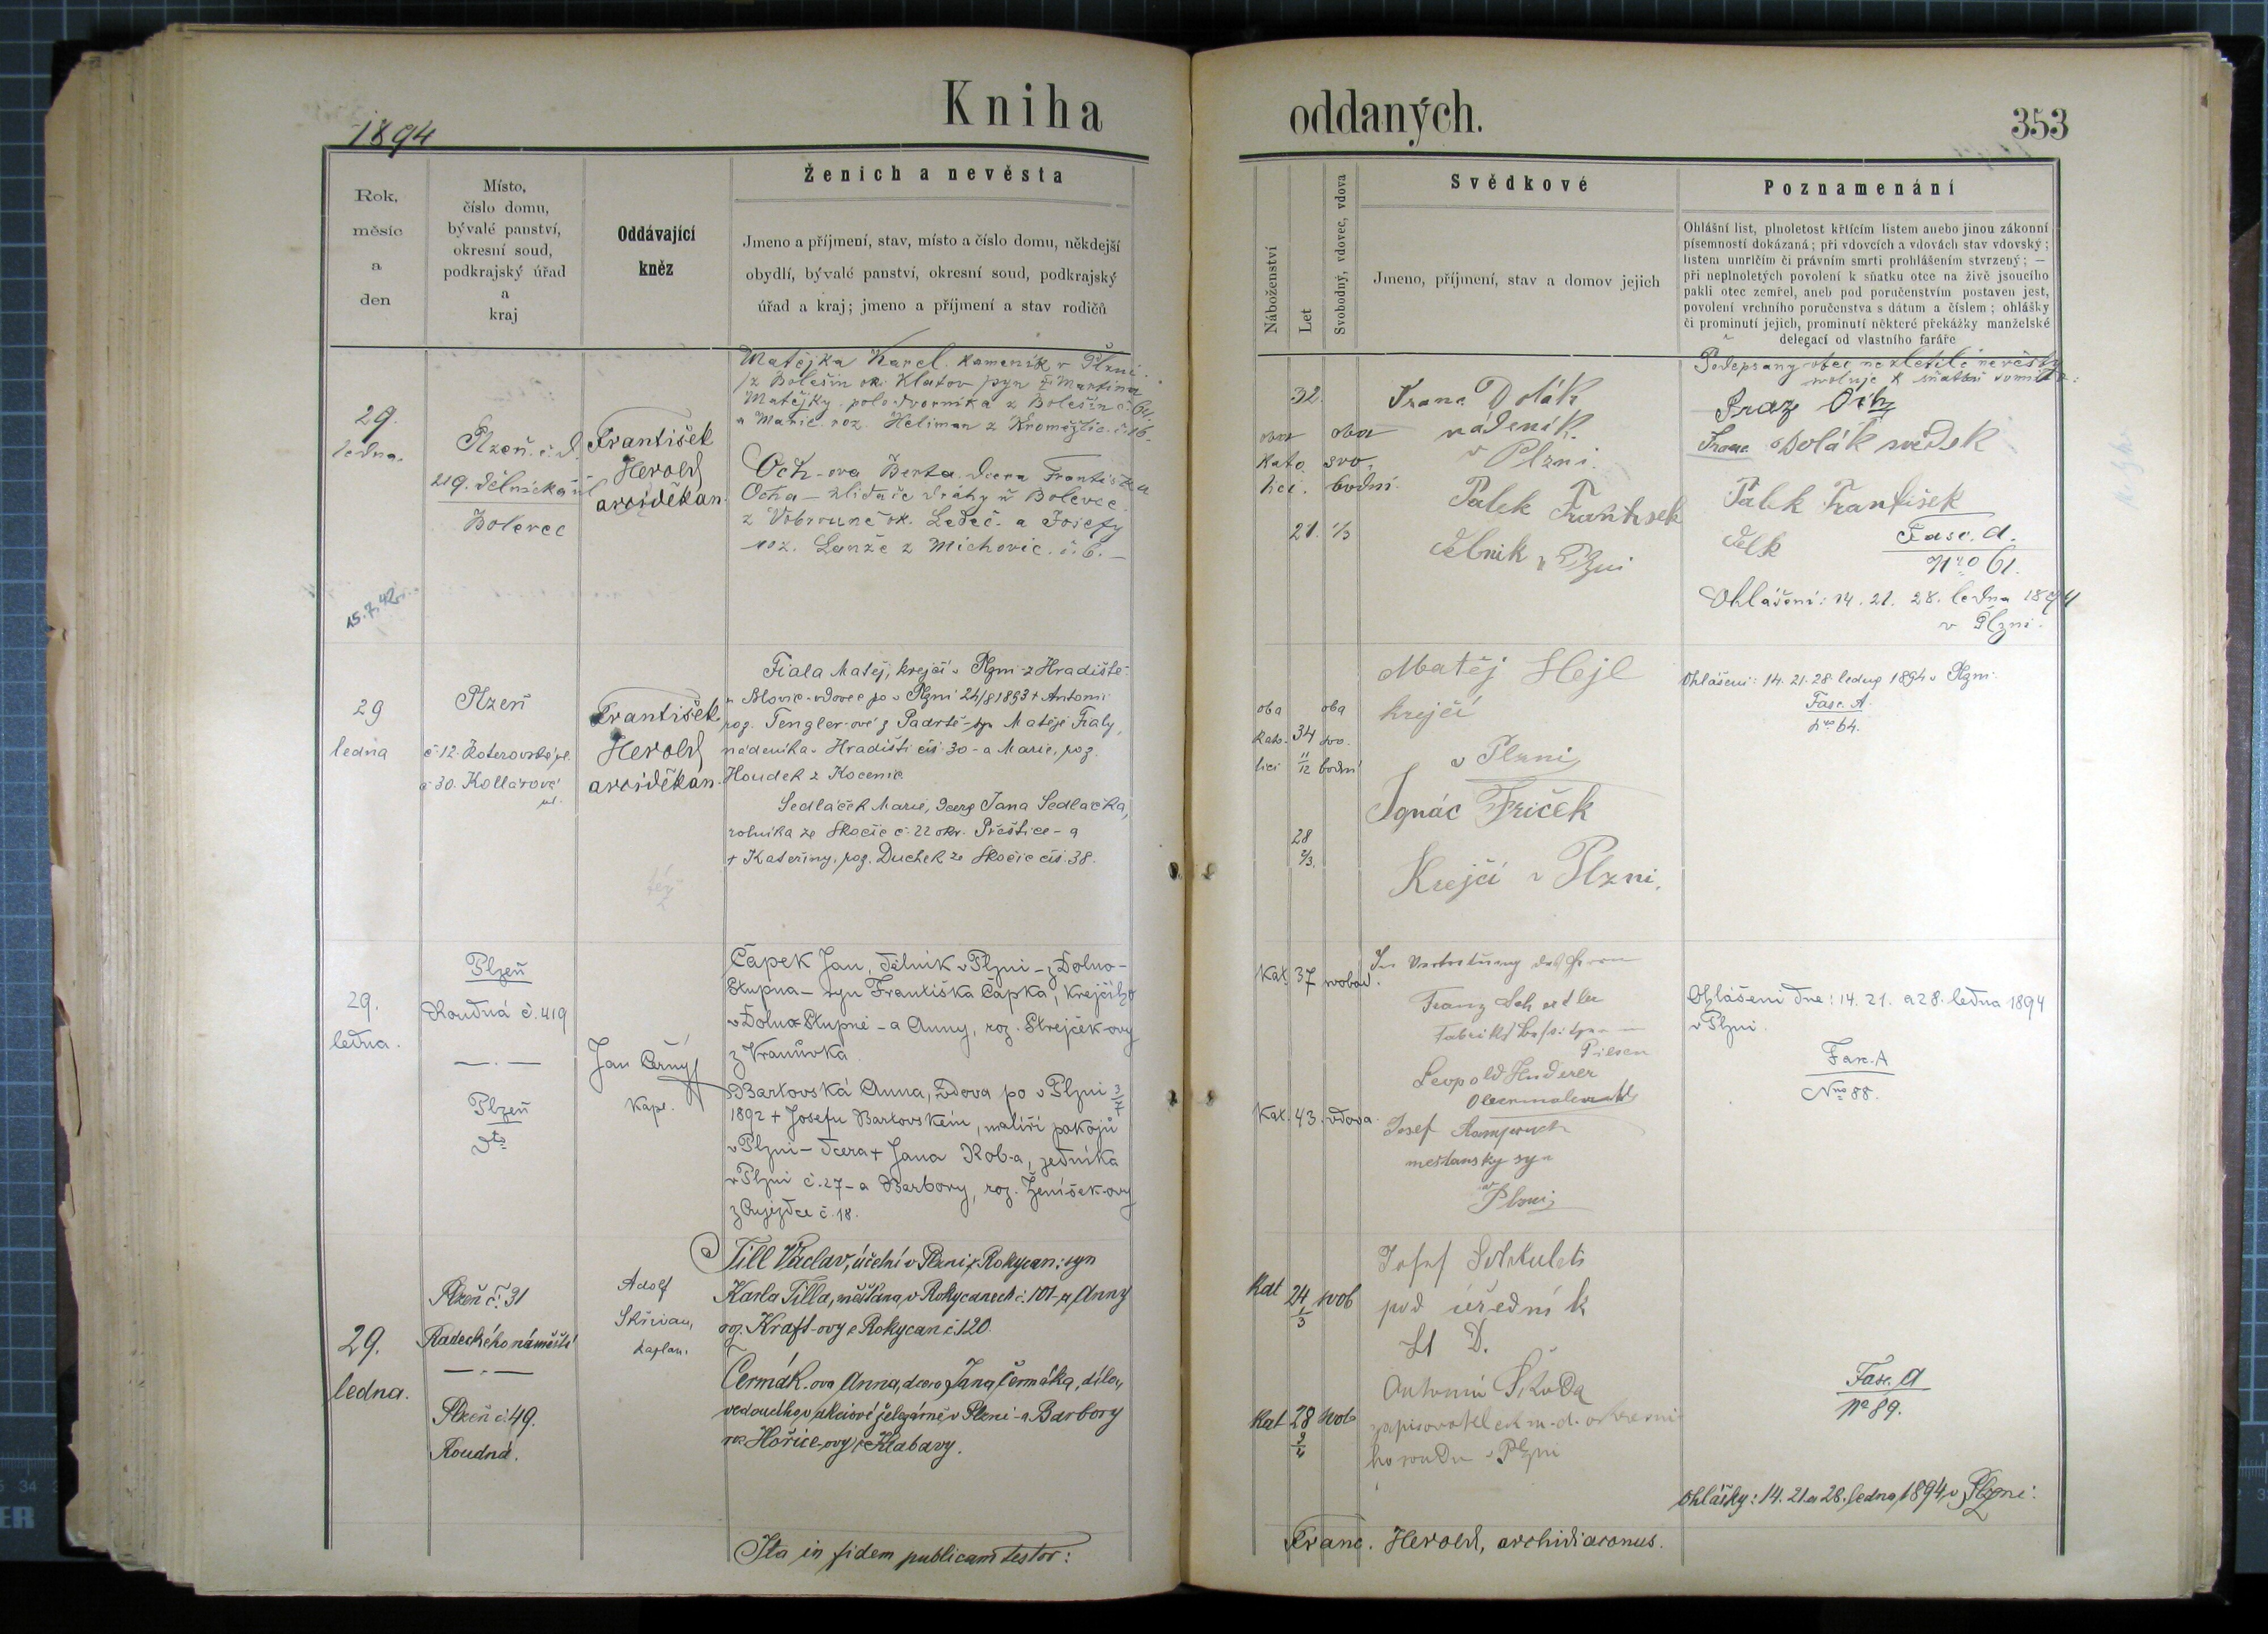 1894
Kniha
Rok,
měsíc
a
den
Místo,
číslo domu,
bývalé panství,
okresní soud,
podkrajský úřad
a
kraj
Oddávající
kněz
Ženich a nevěsta
Jmeno a příjmení, stav, místo a číslo domu, někdejší
obydlí, bývalé panství, okresní soud, podkrajský
úřad a kraj; jmeno a příjmení a stav rodičů
29.
ledna.
Plzeň. č. d.
219. Dělnická ul
Bolevec
František
Herold
arciděkan.
Matějka Karel. kameník v Plzni.
/z Bolešin ok. Klatov syn Martina
Matějky. polodvorníka z Bolešin č. 64.
a Marie. roz. Heliman z Kroměždic. č. 16.
Och-ova Berta. dcera Františka
Ocha - hlídače dráhy v Bolevec
z ok. Ledeč. a Josefy
roz. Lanže z Michovic. č. 6. -
15.7.42.
29
ledna
Plzeň
č. 12. Koterovská ul.
č. 30. Kollárova
ul.
František
Herold
arciděkan.
Fiala Matěj, krejčí v Plzni - z Hradiště
u Blovic - vdovec po v Plzni 24/8 1893 + Antonii
roz. Tengler-ové z Padrtě - syn Matěje Fialy,
nádeníka v Hradišti čís. 30 - a Marie, roz.
Houdek z Kocenic
Sedláček Marie, dcera Jana Sedláčka,
rolníka ze Skočic č. 22 okr. Přeštice - a
+ Kateřiny, roz. Duchek ze Skočic čís. 38.
29.
ledna.
Plzeň
Roudná č. 419
Plzeň
dto
Jan Černý
kapl.
Čapek Jan, dělník v Plzni - z Dolno-
Stupna - syn Františka Čapka, krejčího
v Dolno Stupně - a Anny, roz. Strejček-ovy
z Vranůvka.
Bartovská Anna, vdova po v Plzni 3/7
1892 + Josefu Bartovském, malíři pokojů
v Plzni - dcera + Jana Rob-a, zedníka
v Plzni č. 27 - a Barbory, roz. Ženíšek-ovy
z Oujezdce č. 18.
29.
ledna.
Plzeň č. 31
Radeckého náměstí
Plzeň č. 49.
Roudná.
Adolf
Skřivan,
kaplan.
Till Václav, účetní v Plzni z Rokycan: syn
Karla Tilla, měšťana v Rokycanech č. 101 - a Anny
roz. Kraft-ovy z Rokycan č. 120.
Čermák-ova Anna, dcera Jana Čermáka, dílo-
vedoucího v akciové železárně v Plzni - a Barbory
roz. Hořice-ovy z Klabavy.
Ita in fidem publicam testor:
oddaných.
353
Náboženství
Let
Svobodný, vdovec, vdova
Svědkové
Jmeno, příjmení, stav a domov jejich
Poznamenání
Ohlášní list, plnoletost křticím listem anebo jinou zákonní
písemností dokázaná; při vdovcích a vdovách stav vdovský;
listem umrlčím či právním smrti prohlášením stvrzený; —
při neplnoletých povolení k sňatku otce na živě jsoucího
pakli otec zemřel, aneb pod poručenstvím postaven jest,
povolení vrchního poručenstva s dátum a číslem; ohlášky
či prominutí jejich, prominutí některé překážky manželské
delegací od vlastního faráře
oba
kato
lici.
32.
21. 1/3
oba
svo.
bodni.
Franc Dolák
nádeník.
v Plzni.
Palek František
dělnik v Plzni
Podepsaný otec nezletilé nevěsty
svoluje k sňatku tomuto:
Och
Franc Dolák svědek
Palek František
Fasc. A.
Nro 61.
Ohlášení: 14. 21. 28. ledna 1894
v Plzni.
oba
kato.
lici
34
11/12
28
2/3.
oba
svo.
bodní
Matěj Hejl
krejčí
v Plzni
Ignác Friček
Krejčí v Plzni.
Ohlášení: 14. 21. 28. ledna 1894 v Plzni.
Fasc. A.
Nro 64.
Kat. 37 svobod.
Kat. 43. vdova
In Vertretung des Herrn
Franz
Pilsen
Leopold Huderer
Josef
mešťanský syn
v Plzni
Ohlášení dne: 14. 21. a 28. ledna 1894
v Plzni.
Fasc. A
Nro 88.
Kat 24 1/3 svob
Kat 28 9/4 svob
Josef
pod úředník
St D.
Antonín Škoda
zapisovatel m. d. okresní
ho soudu v Plzni
Fasc. A
No 89.
Ohlášky: 14. 21. a 28. ledna 1894 v Plzni.
Franc. Herold, archidiaconus.